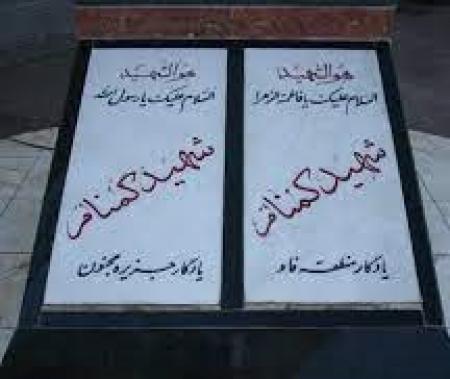 هو الشهید
السلام علیک یا فاطمة الزهرا
شهید گمنام
یادگار منطقه فاو
هو الشهید
السلام علیک یا رسول الله
شهید گمنام
یادگار جزیره مجنون